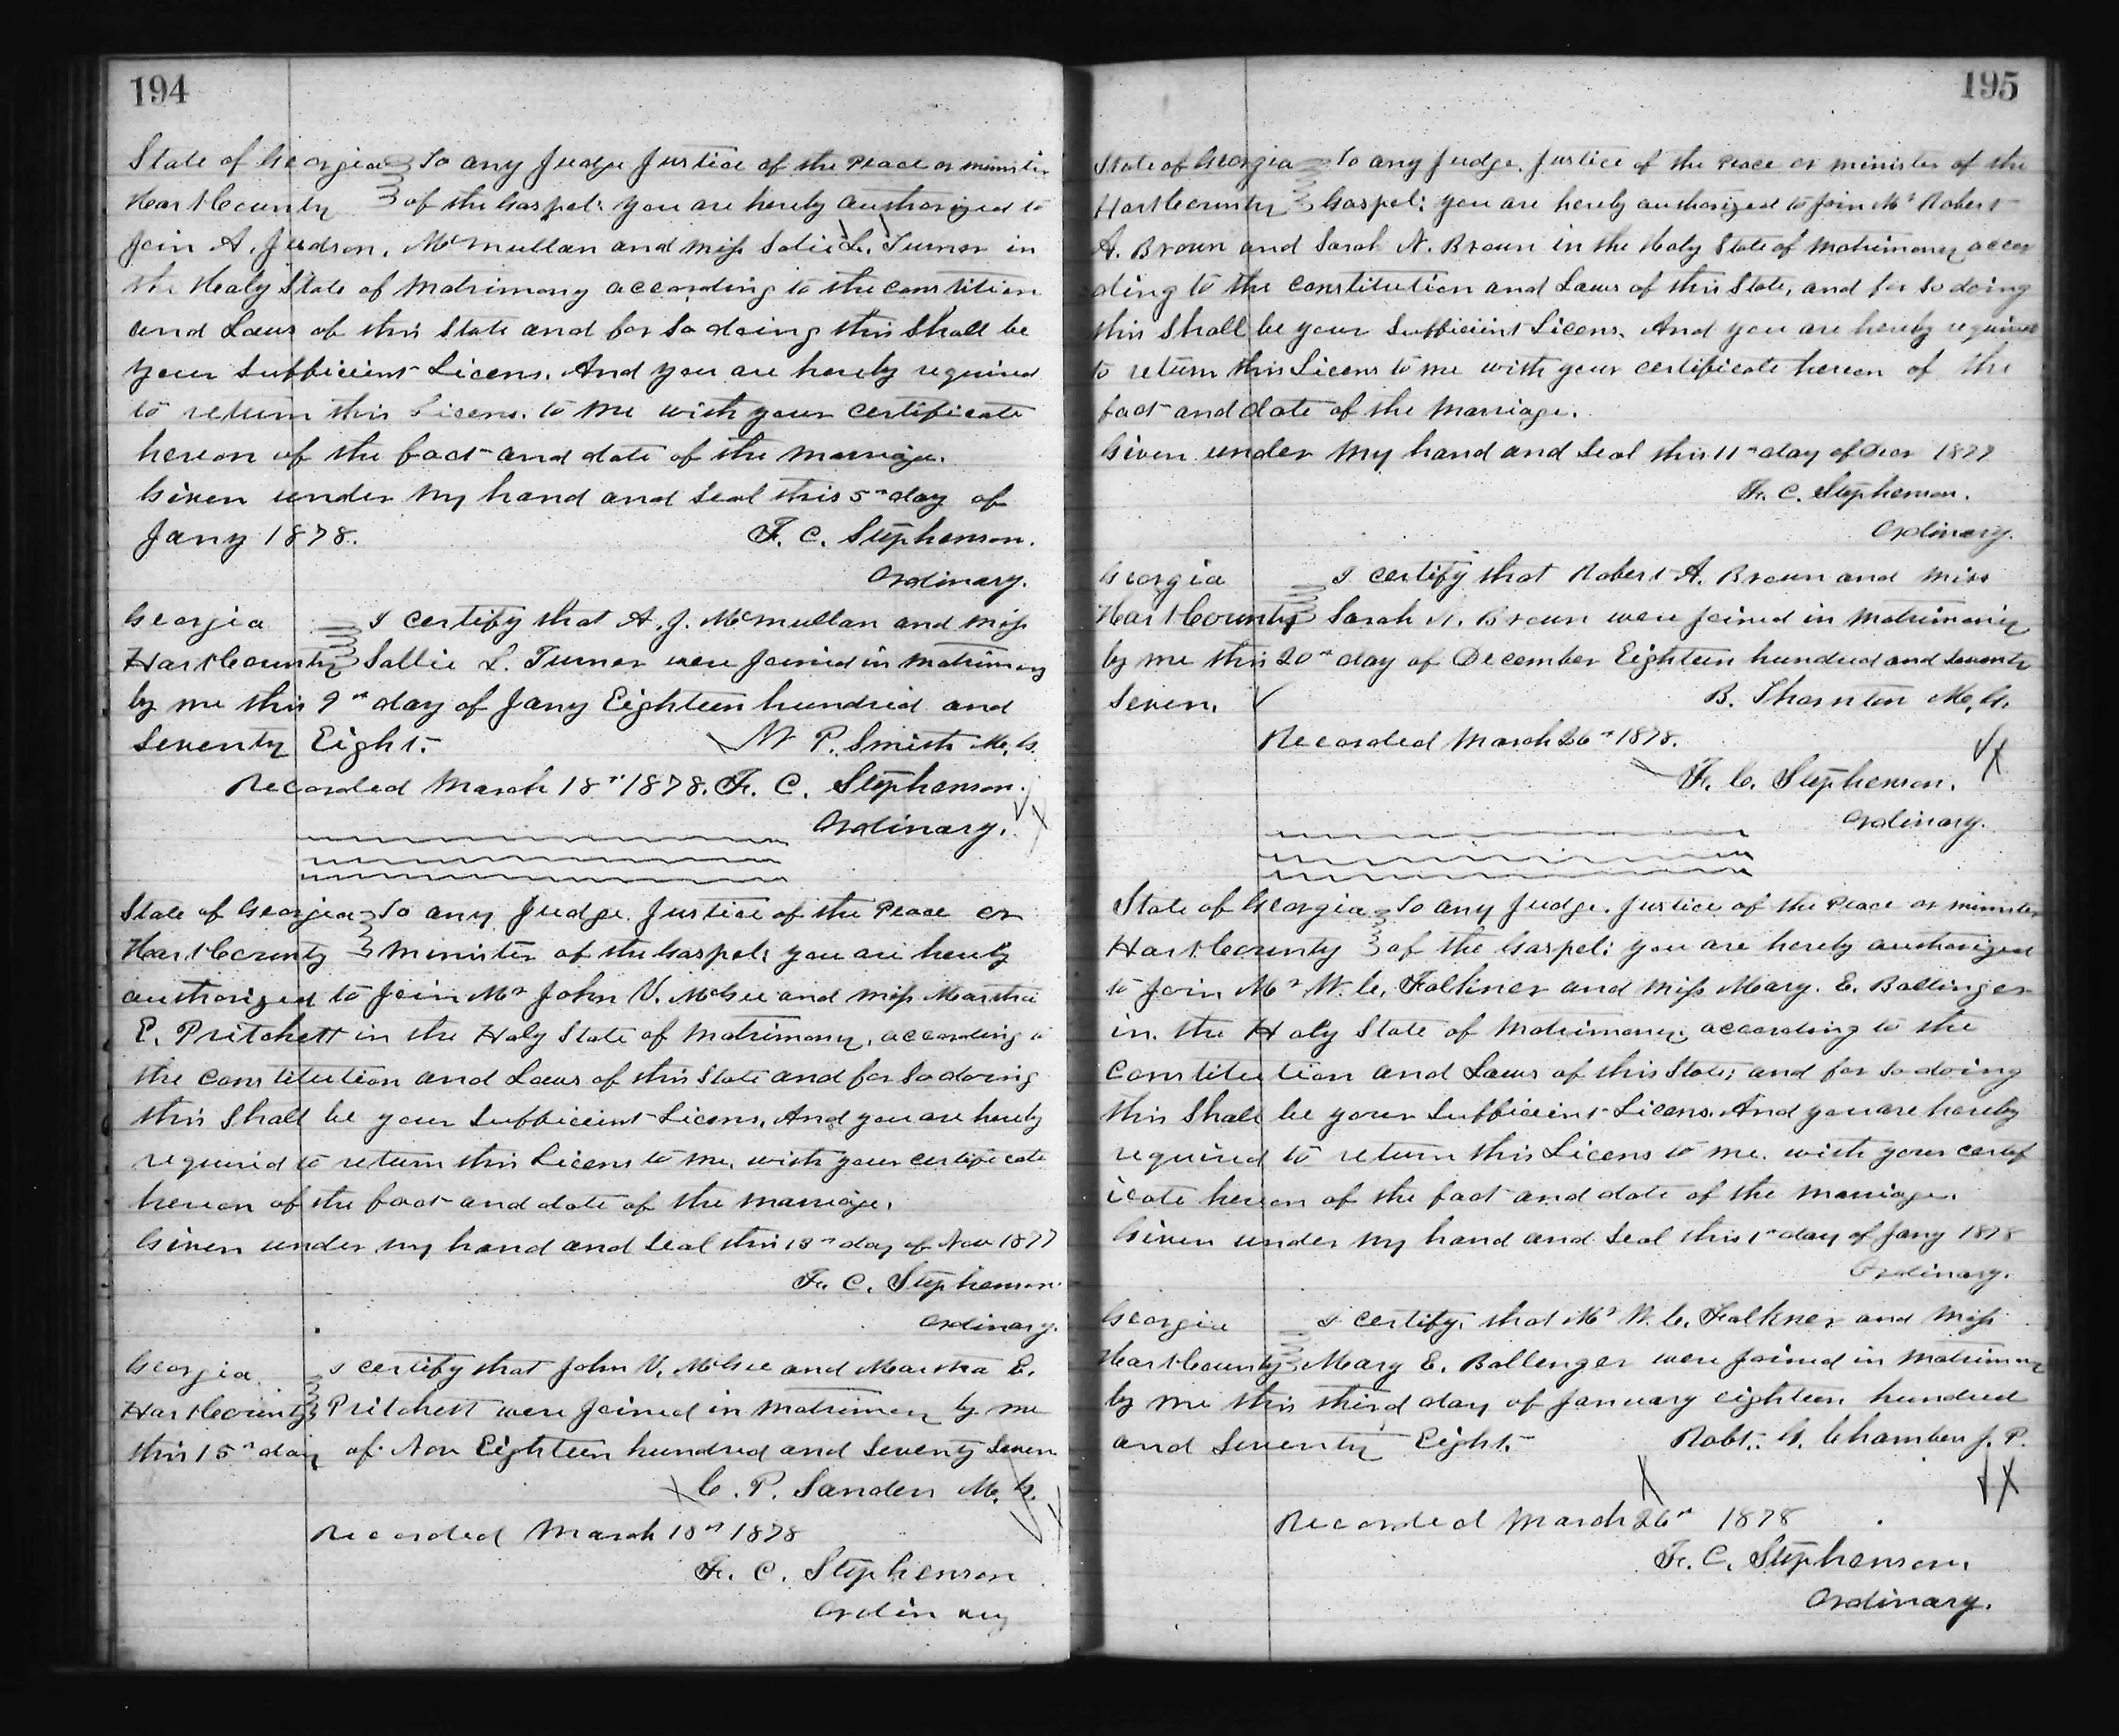 194
State of Georgia To any Judge Justice of the Peace or minister
Hart County of the Gospel: you are hereby authorized to
Join A. Judson. McMullan and miss Salie L. Turner in
the Holy State of Matrimony according to the constitution
and Laws of this State and for So doing this Shall be
your Sufficient Licens. And you are hereby required
to return this Licens. to me with your certificate
hereon of the fact and date of the marriage.
Given under my hand and Seal this 5th day of
Jany 1878. F. C. Stephenson.
Ordinary.
Georgia I certify that A. J. McMullan and miss
Hart County Sallie L. Turner were Joined in matrimony
by me this 9th day of Jany Eighteen hundred and
Seventy Eight. W P. Smith M. G.
Recorded March 18th 1878. F. C. Stephenson.
Ordinary.
State of Georgia To any Judge Justice of the Peace or
Hart County minister of the Gospel: you are hereby
authorized to Join Mr John V. McGee and miss Martha
E. Pritchett in the Holy State of Matrimony, according to
the constitution and Laws of this State and for So doing
this Shall be your Sufficient Licens. And you are hereby
required to return this Licens to me. with your certificate
hereon of the fact and date of the marriage.
Given under my hand and Seal this 13th day of Nov 1877
F. C. Stephenson
Ordinary.
Georgia I certify that John V. McGee and Martha E.
Hart County Pritchett were Joined in matrimony by me
this 15th day of Nov Eighteen hundred and Seventy Seven
C. P. Sanders M. G.
Recorded March 18th 1878
F. C. Stephenson
Ordinary
195
State of Georgia To any Judge. Justice of the Peace or minister of the
Hart County Gospel: you are hereby authorized to Join Mr Robert
A. Brown and Sarah N. Brown in the Holy State of Matrimony accor
ding to the constitution and Laws of this State, and for So doing
this Shall be your Sufficient Licens. And you are hereby required
to return this Licens to me with your certificate hereon of the
fact and date of the Marriage.
Given under my hand and Seal this 11th day of Decr 1877
F. C. Stephenson.
Ordinary.
Georgia I certify that Robert A. Brown and miss
Hart County Sarah N. Brown were Joined in Matrimony
by me this 20th day of December Eighteen hundred and Seventy
Seven. B. Thornton M. G.
Recorded March 26th 1878.
F. C. Stephenson.
Ordinary.
State of Georgia To any Judge. Justice of the Peace or minister
Hart County of the Gospel: you are hereby authorized
to Join Mr W. C. Falkner and miss Mary. E. Ballinger
in the Holy State of Matrimony according to the
Constitution and Laws of this State; and for So doing
this Shall be your Sufficient Licens. And you are hereby
required to return this Licens to me. with your certif
icate hereon of the fact and date of the marriage.
Given under my hand and Seal this 1st day of Jany 1878
Ordinary.
Georgia I certify. that Mr W. C. Falkner and Miss
Hart County Mary E. Ballenger were Joined in Matrimony
by me this third day of January eighteen hundred
and Seventy Eight. Robt. G. Chambers J. P.
Recorded March 26th 1878
F. C. Stephenson.
Ordinary.